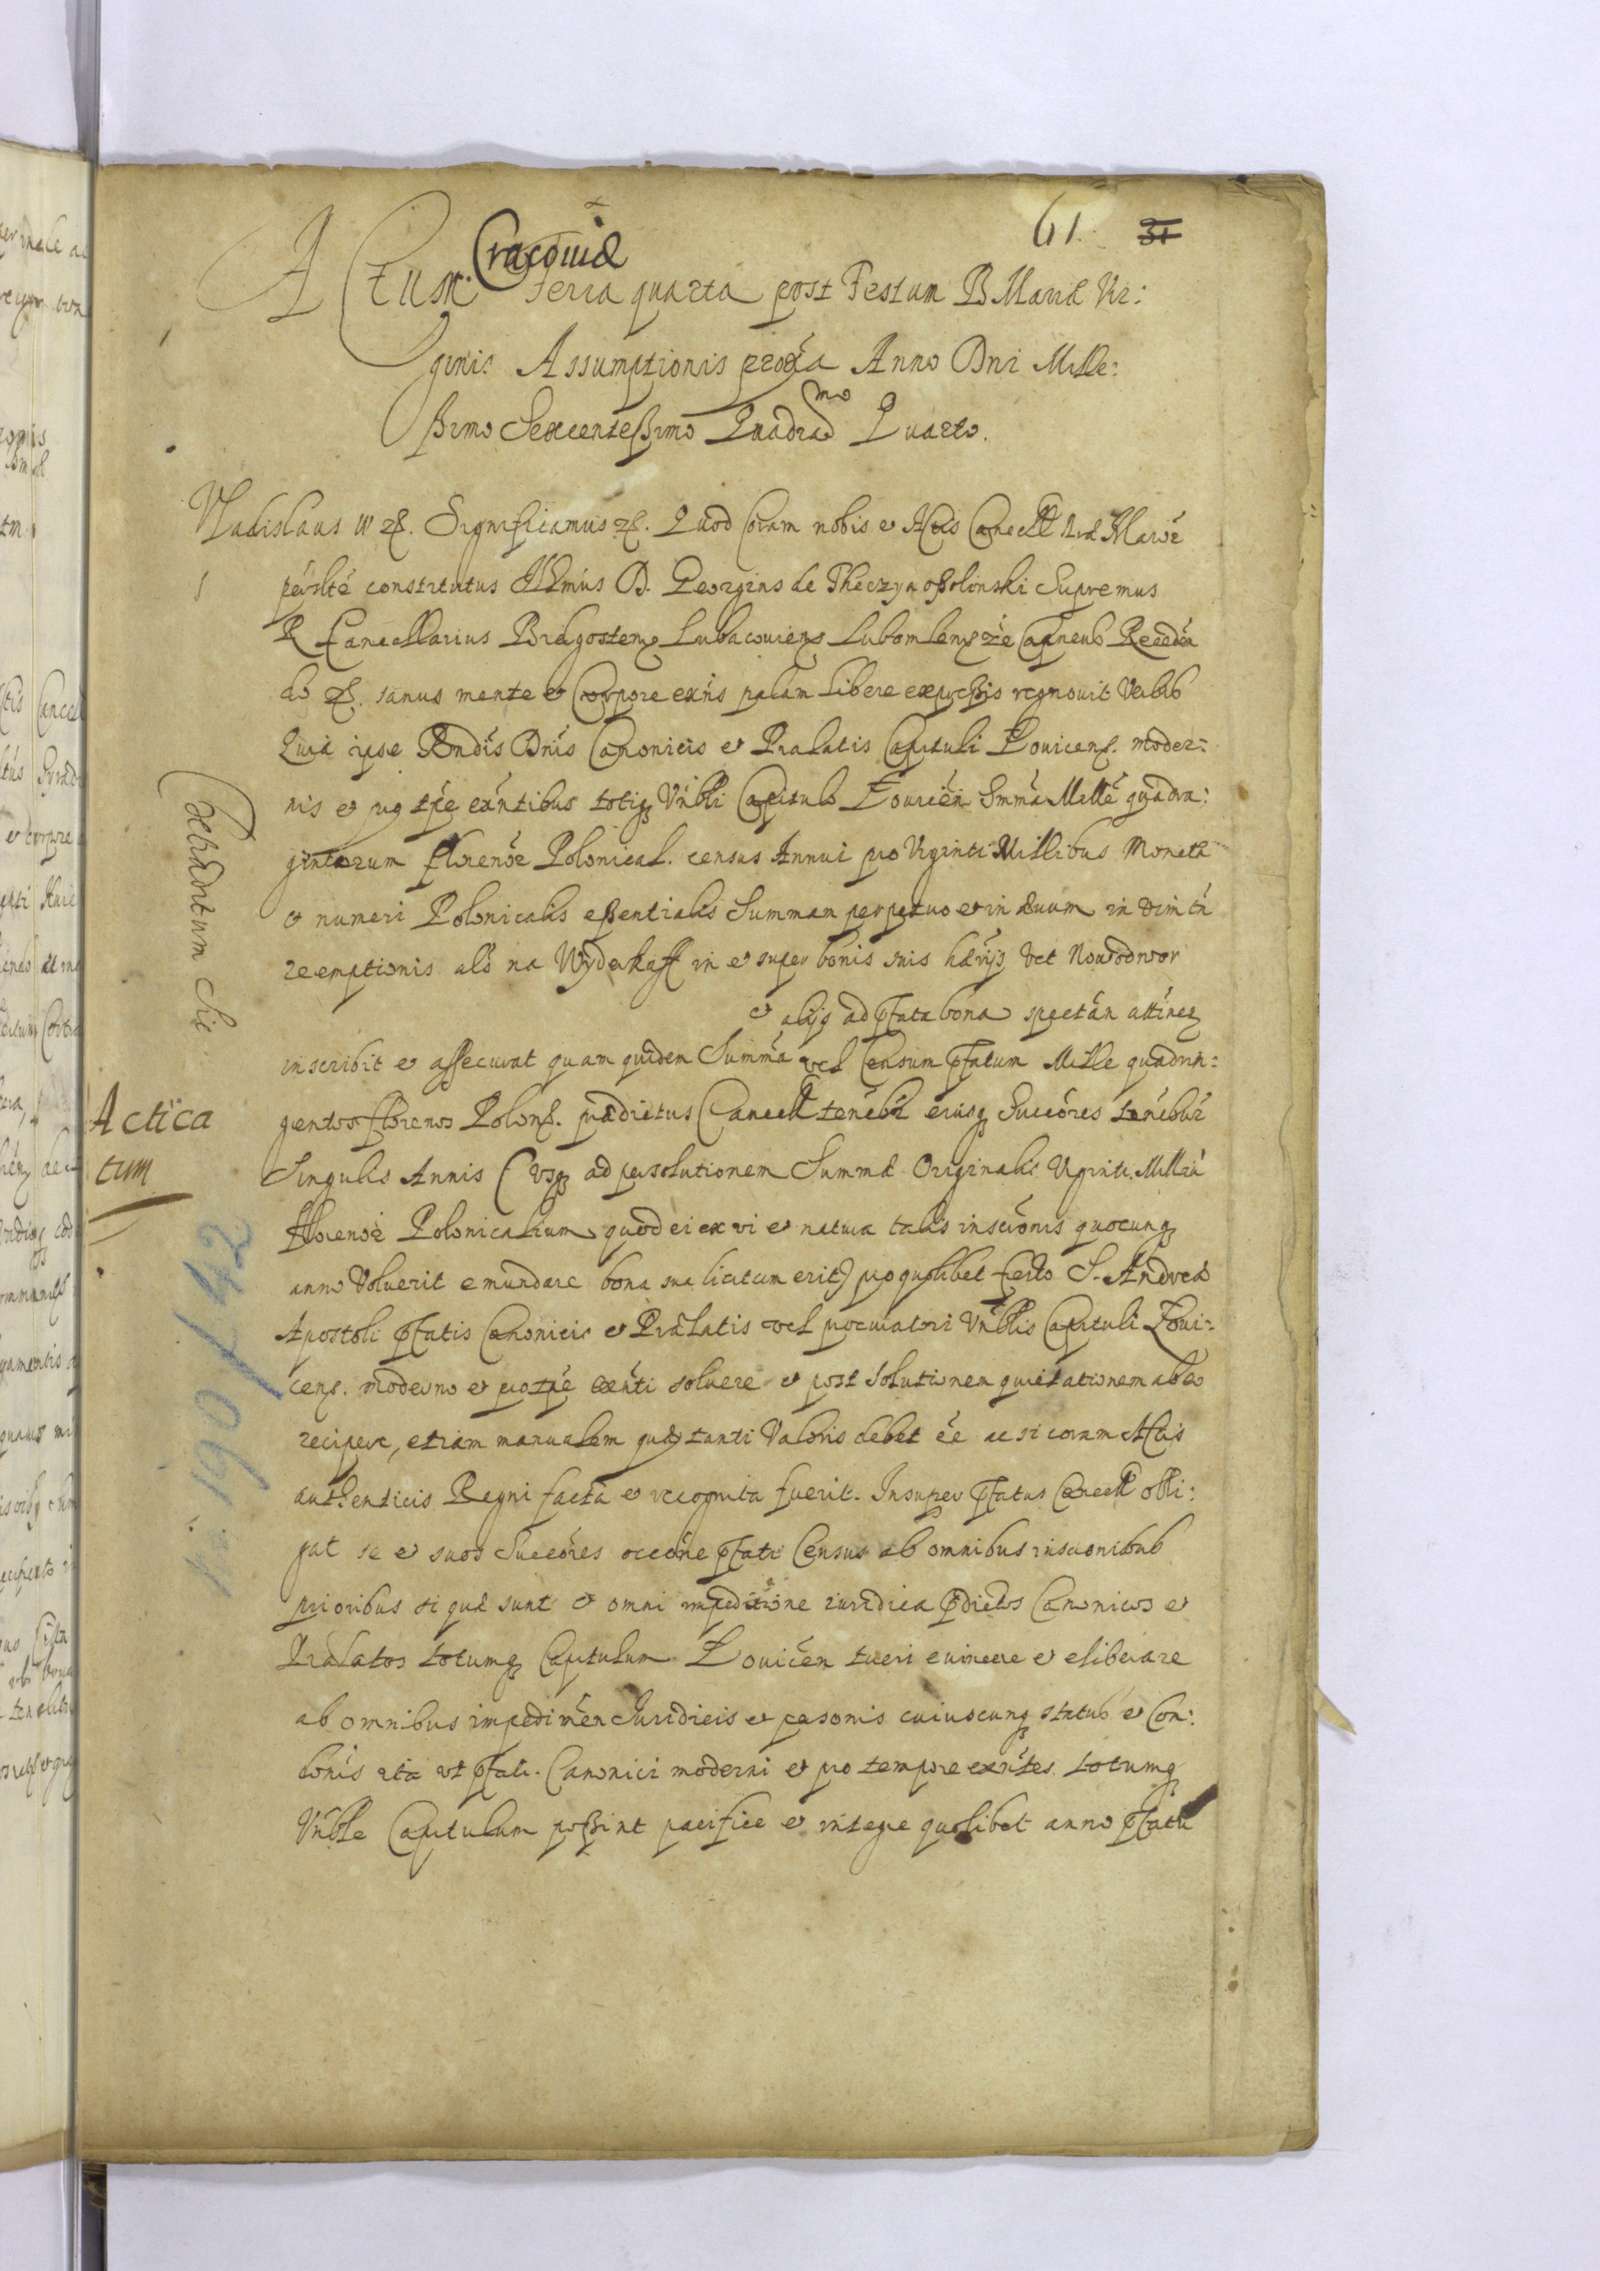 61. 31
Cracouiæ
Actum feria quarta post Festum B Mariæ Vir:
ginis Assumptionis proxa Anno Dni Mille:
ssimo Sexcentessimo Quadragmo Quarto.
Vladislaus IV etc. Significamus etc. Quod Coram nobis et Actis Cancell Nræ Maioř
psnlté constitutus Illmus D. Georgius de Theczyn Ossolinski Supremus
R Cancellarius Bydgosten Lubacouiens Lubomlens
do etc. sanus mente et Corpore exńs palam libere expressis recognouit Verbis
Quia ipse Rndis Dnis Canonicis et Prælatis Capituli Louicens. moder:
nis et pro tpe exńtibus totiq Vnbli Capitulo Louicen Smma Mille quadrin:
gintorum florenor Polonical. census Annui pro Viginti Millibus Monetæ
et numeri Polonicalis essentialis Summam perpetuo et in æuum in vim tń
reemptionis als na Wyderkaff in et super bonis suis hærijs vct Nowodwor
et alijs ad pfata bona spectán attinen
inscribit et assecurat quam quidem Summa vel Censum pfatum Mille quadrin:
gentos florenos Polons. prædictus Cancell tenebit eiusq Succores tenebūr
Singulis Annis (vsq ad persolutionem Summæ Originalis Viginti Milliū
florenor Polonicalium quod ei ex vi et natura talis inscrionis quocunq
anno Voluerit emundare bona sua licitum erit) pro quolibet festo S. Andreæ
Apostoli pfatis Canonicis et Prælatis vel procuratori Vnblis Capituli Loui:
cens. moderno et pro tpe exńti soluere et post Solutionem quietationem ab eo
recipere, etiam manualem quæ tanti Valoris debet eē ac si coram Actis
authenticis Regni facta et recognita fuerit. Insuper pfatus Cancell obli:
gat se et suos Succores occone pfati Census ab omnibus inscrionibus
prioribus si quæ sunt et omni impeditione iuridica pdictos Canonicos et
Prælatos totumq Capitulum Louicen tueri euincere et eliberare
ab omnibus impedimen Juridicis et personis cuiuscunq status et Con:
donis ita vt pfati Canonici moderni et pro tempore exńtes totumq
Vnble Capitulum possint pacifice et integre quolibet anno pfatū
Actica
tum
190/42